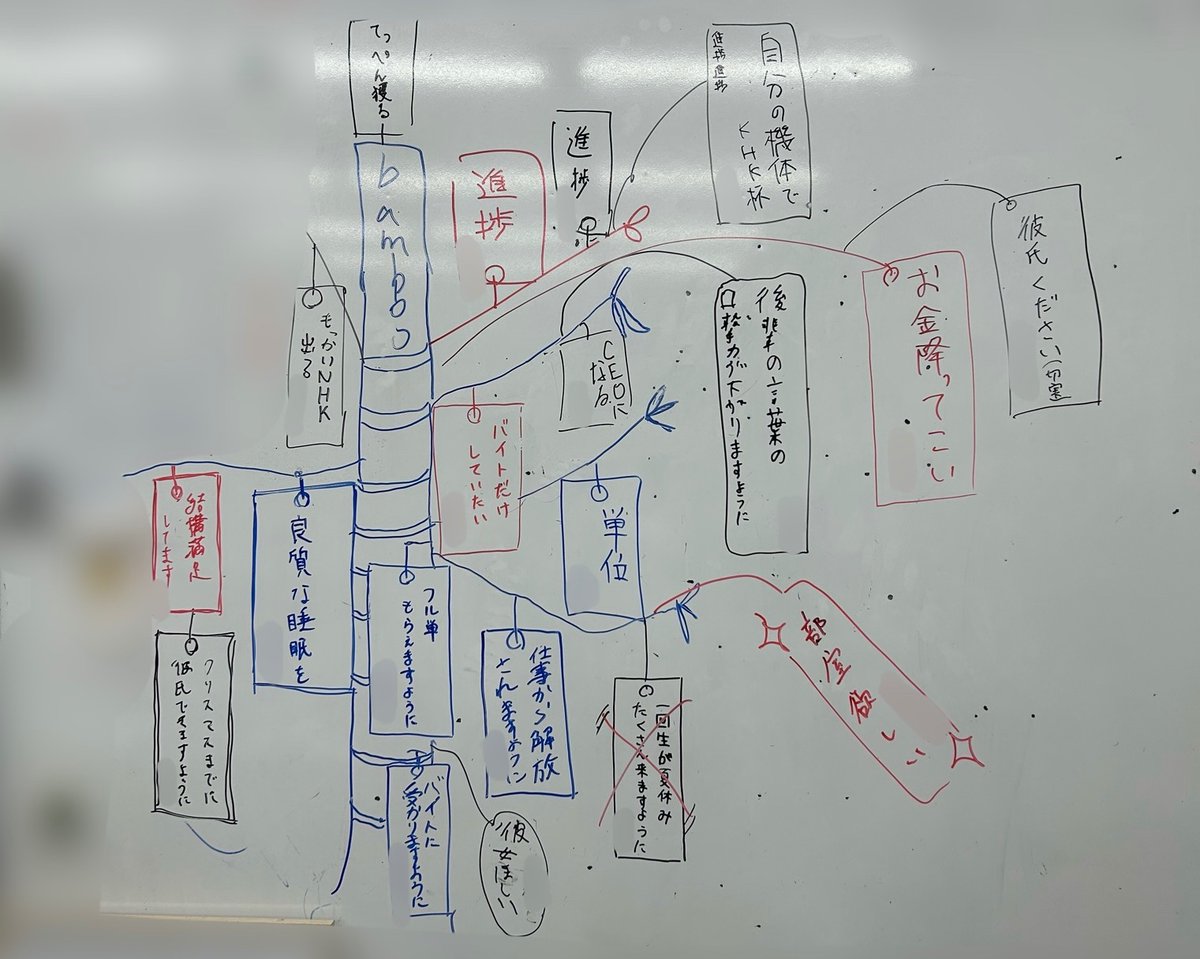 てっぺん獲る
bamboo
進捗
進捗
自分の機体で
KHK杯
進捗進捗
彼氏ください
お金降ってこい
後輩の言葉の
口
が下がりますように
CEOに
なる
もっかいNHK
出る
バイトだけ
していたい
単位
結構満足
してます
良質な睡眠を
フル単
もらえますように
仕事から解放
されますように
部室欲しい
クリスマスまでに
彼氏できますように
一回生が夏休み
たくさん来ますように
バイトに
受かりますように
彼女ほしい